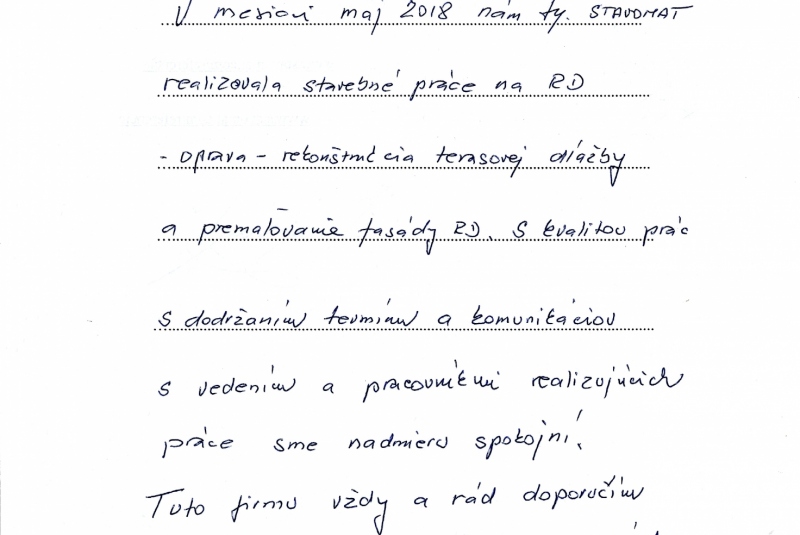 V mesiaci máj 2018 nám fy. STAVOMAT
realizovala stavebné práce na RD
- oprava - rekonštrukcia terasovej dlažby
a premaľovanie fasády RD. S kvalitou prác
s dodržaním termínu a komunikáciou
s vedením a pracovníkmi realizujúcich
práce sme nadmieru spokojní.
Túto firmu vždy a rád doporučím